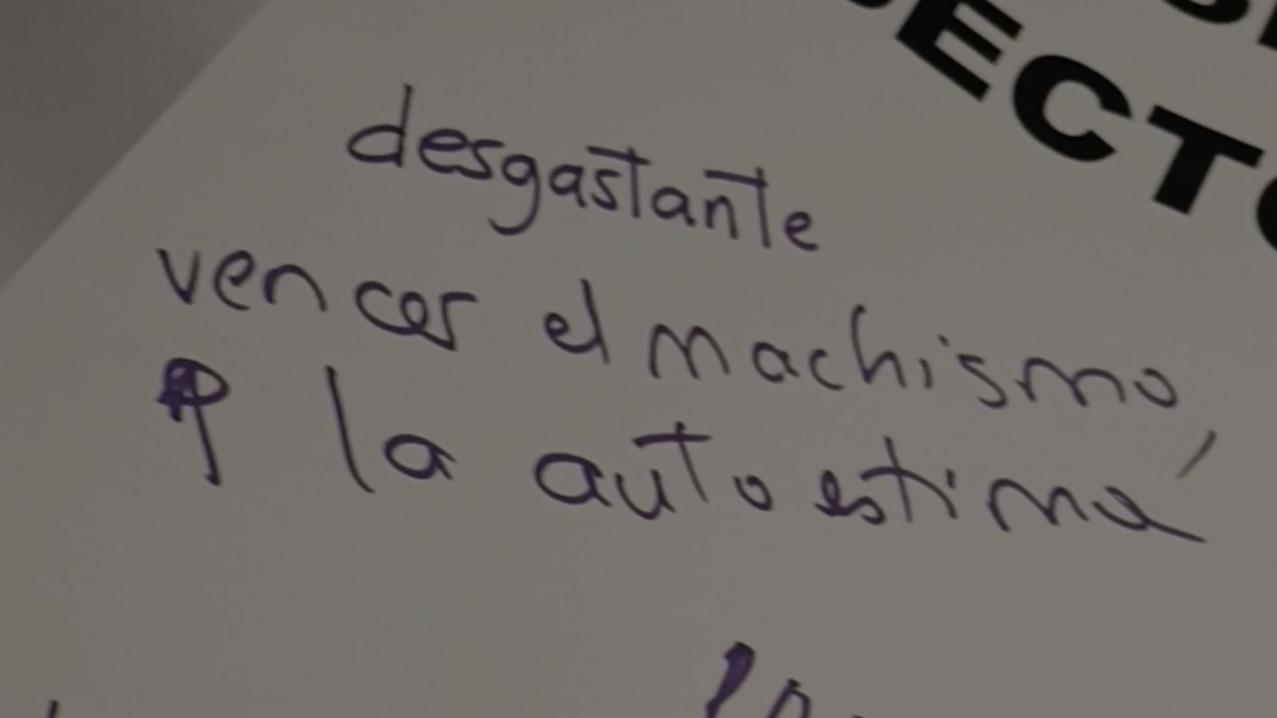 ECT
desgastante
vencer el machismo,
la autoestima